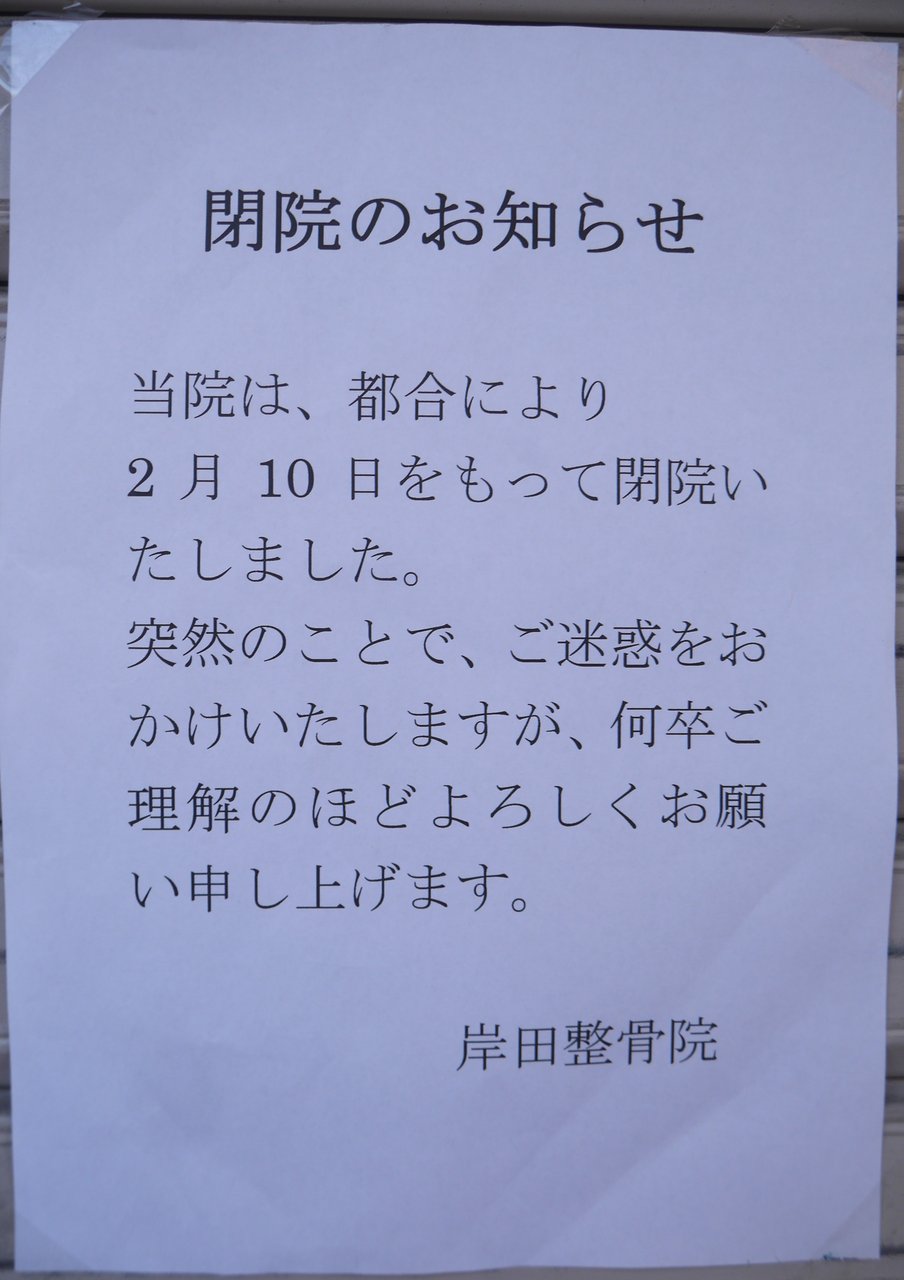 閉院のお知らせ
当院は、都合により
2 月 10 日をもって閉院い
たしました。
突然のことで、ご迷惑をお
かけいたしますが、何卒ご
理解のほどよろしくお願
い申し上げます。
岸田整骨院